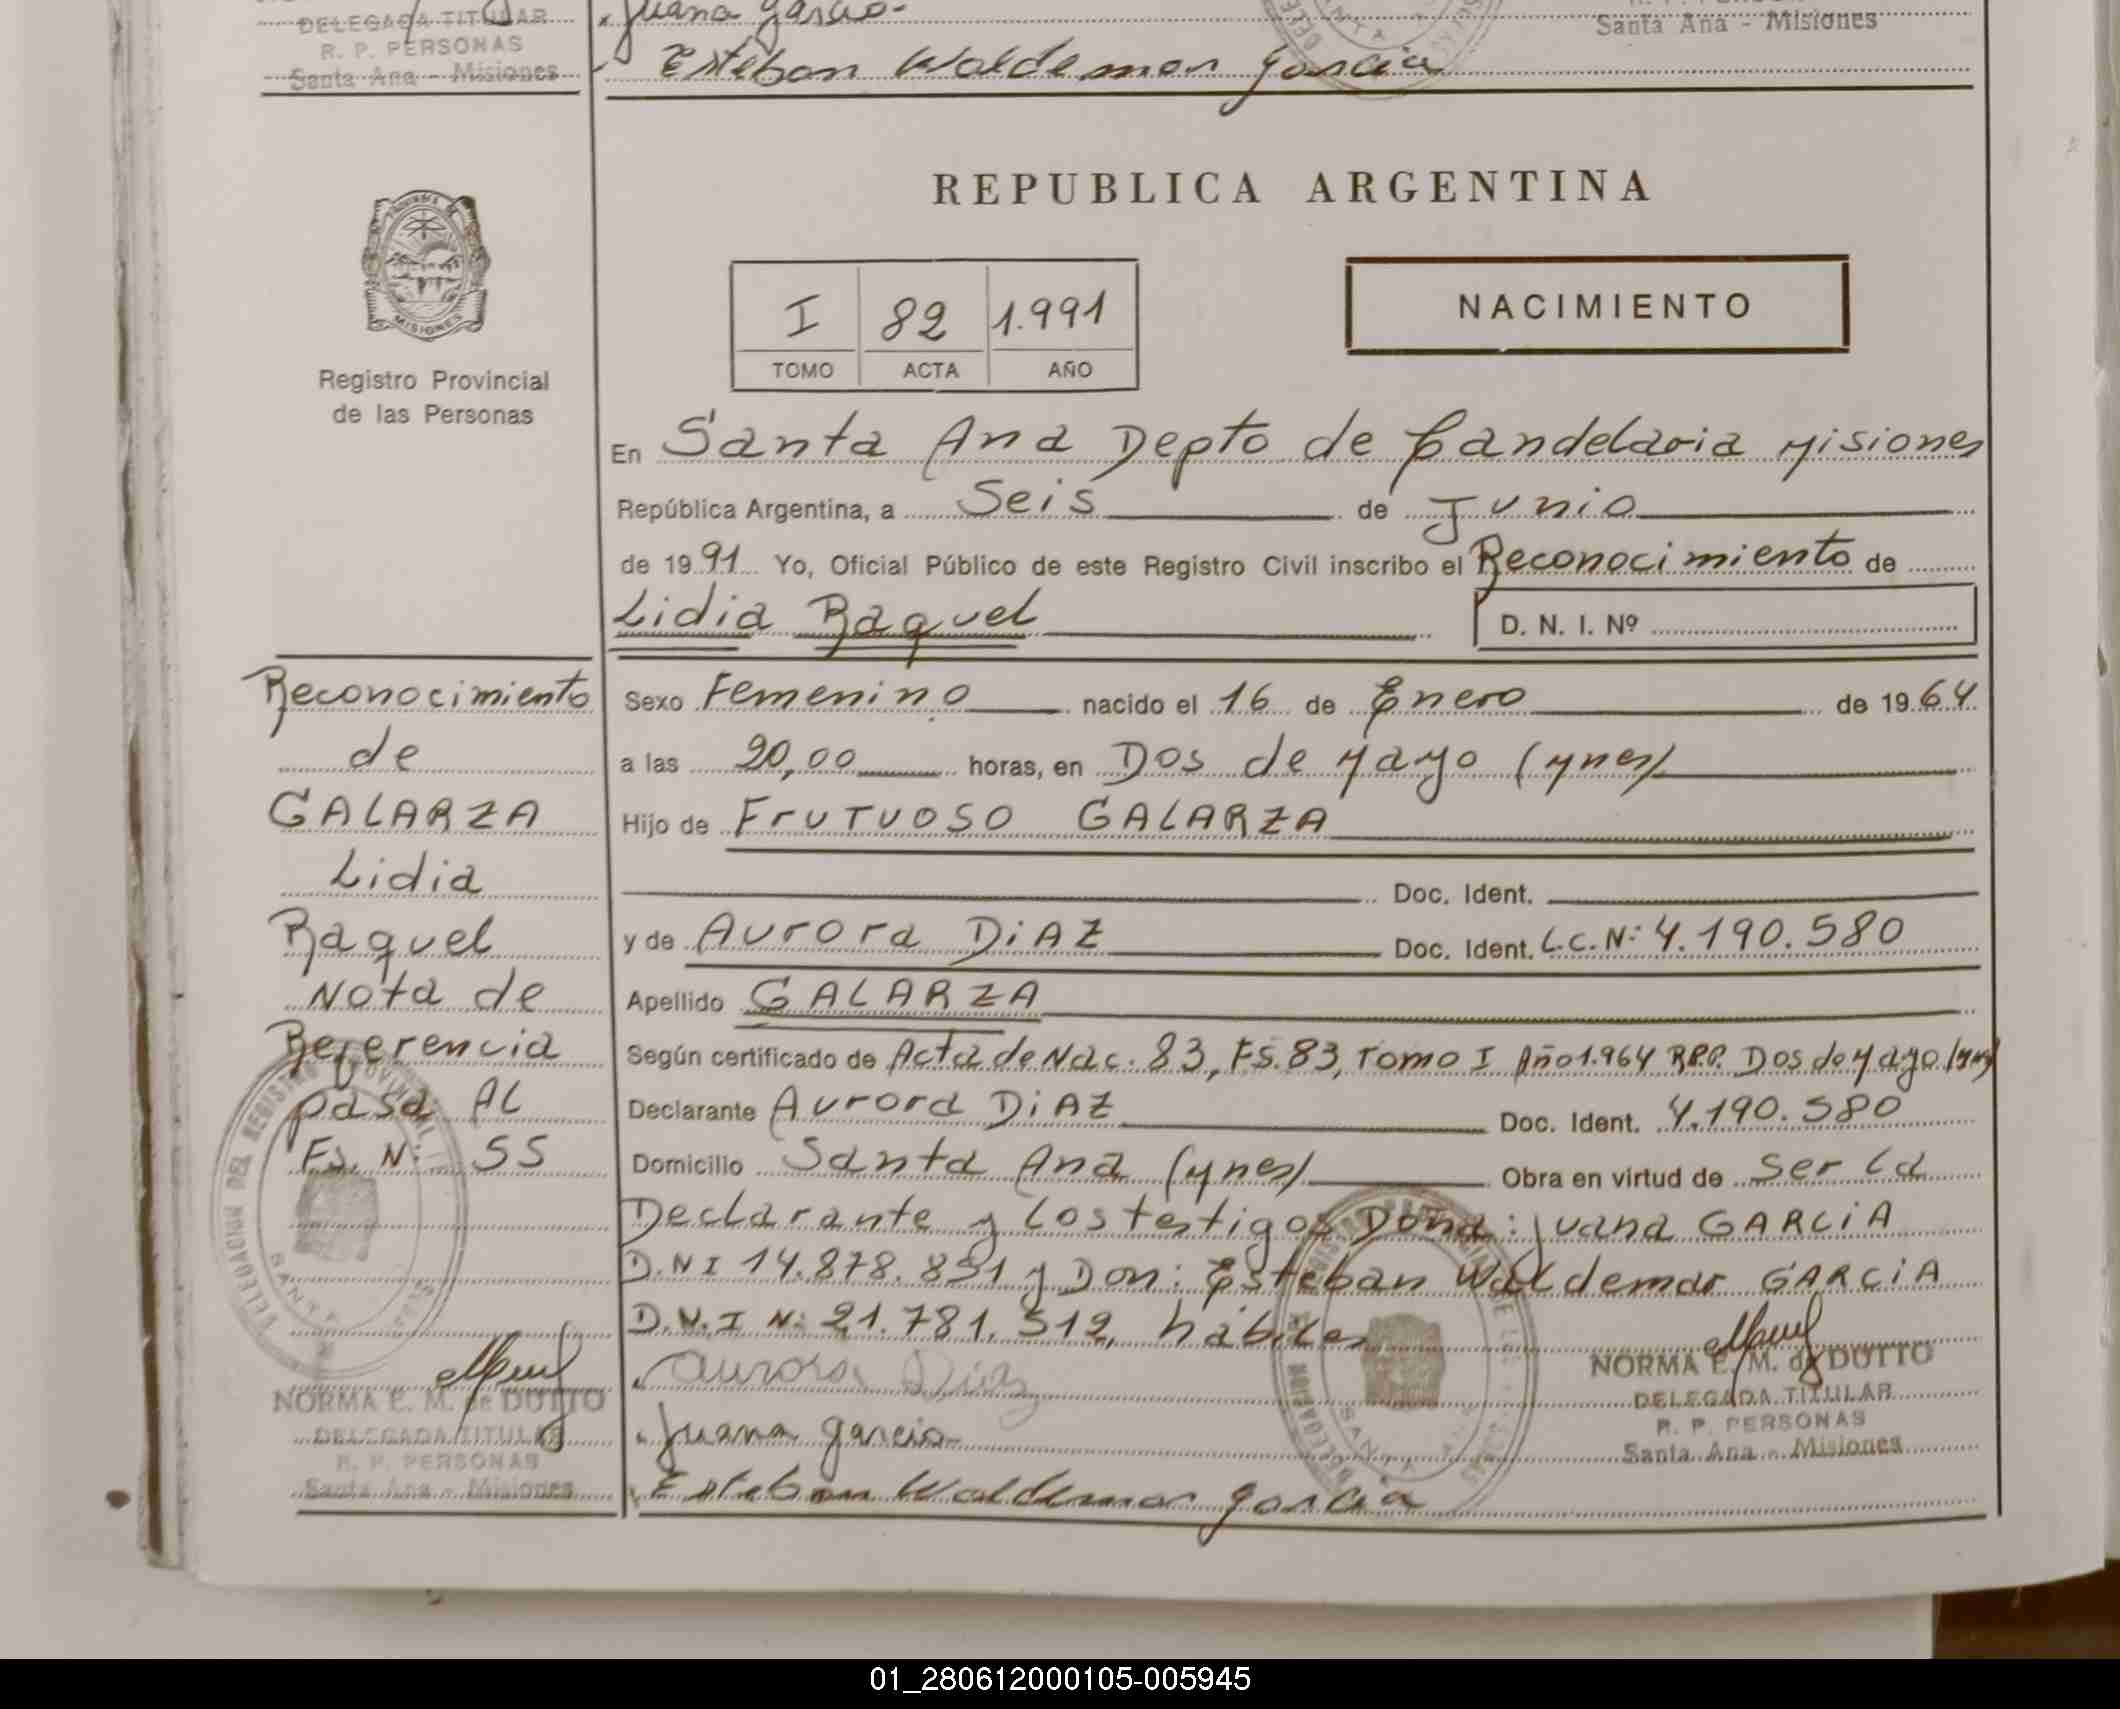 DELEGADA TITULAR
R. P. PERSONAS
Santa Ana - Misiones
Juana Garcia
Santa Ana - Misiones
Esteban Waldemar Garcia
PROVINCIA DE
MISIONES
Registro Provincial
de las Personas
REPUBLICA ARGENTINA
I 82 1.991
TOMO ACTA AÑO
NACIMIENTO
En Santa Ana Depto de Candelaria Misiones
República Argentina, a Seis de Junio
de 1991 Yo, Oficial Público de este Registro Civil inscribo el Reconocimiento de
Lidia Raquel D. N. I. Nº
Sexo Femenino nacido el 16 de Enero de 1964
a las 20,00 horas, en Dos de Mayo (Mnes)
Hijo de FruTUOSO GALARZA
Doc. Ident.
y de Aurora DiAZ Doc. Ident. L.C.N: 4.190.580
Apellido GALARZA
Según certificado de Acta de Nac. 83, FS. 83, Tomo I Año 1.964 R.P.P. Dos de Mayo (Mnes)
Declarante Aurora DiAZ Doc. Ident. 4.190.580
Domicilio Santa Ana (Mnes) Obra en virtud de Ser La
Declarante y Los testigos Doña: Juana GARCiA
D.N I 14.878.851 y Don: Esteban Waldemar GARCiA
D.N.I N: 21.781.512, hábiles
Aurora Diaz
Juana Garcia
Esteban Waldemar Garcia
NORMA E. M. de DUTTO
DELEGADA TITULAR
R. P. PERSONAS
Santa Ana - Misiones
Reconocimiento
de
GALARZA
Lidia
Raquel
Nota de
Referencia
pasa AL
Fs. N: 55
NORMA E. M. de DUTTO
DELEGADA TITULAR
R. P. PERSONAS
Santa Ana - Misiones
01_280612000105-005945